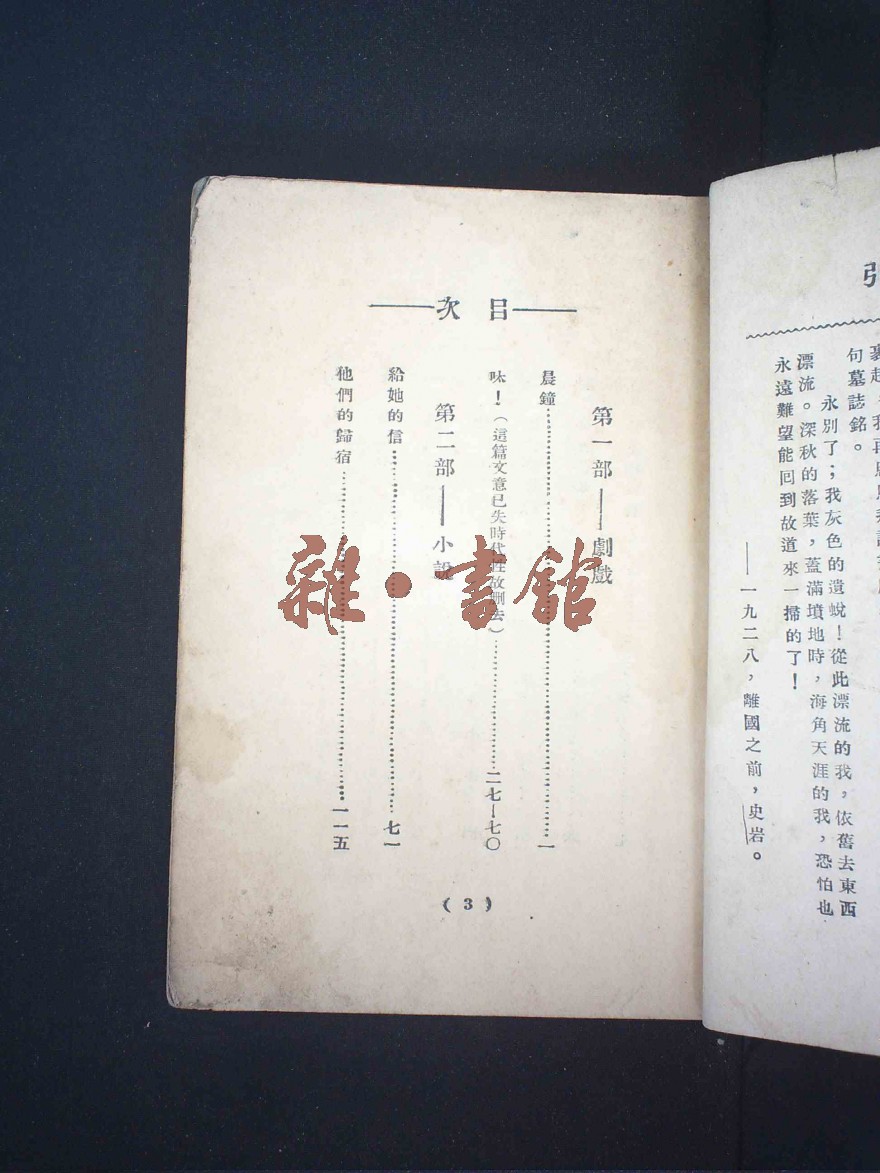 句墓誌銘。
永別了；我灰色的遺蛻！從此漂流的我，依舊去東西
漂流。深秋的落葉，蓋滿墳地時，海角天涯的我，恐怕也
永遠難望能回到故道來一掃的了！
——一九二八，離國之前，史岩。
——目次——
第一部——劇戲
晨鐘……一
呔！（這篇文意已失時代性故刪去）……二七—七〇
第二部——小說
給她的信……七一
他們的歸宿……一一五
(3)
雜·書館